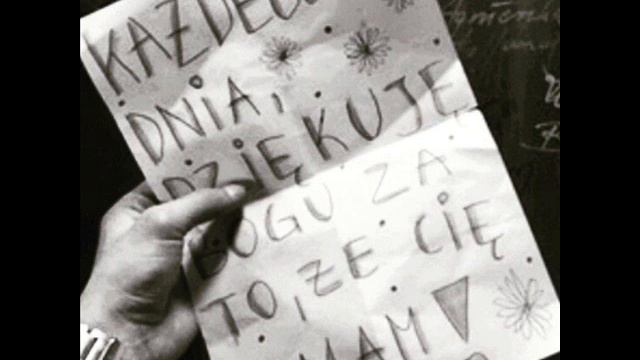 KAŻDEGO
DNIA,
DZIĘKUJĘ
BOGU ZA
TO, ŻE CIĘ
MAM